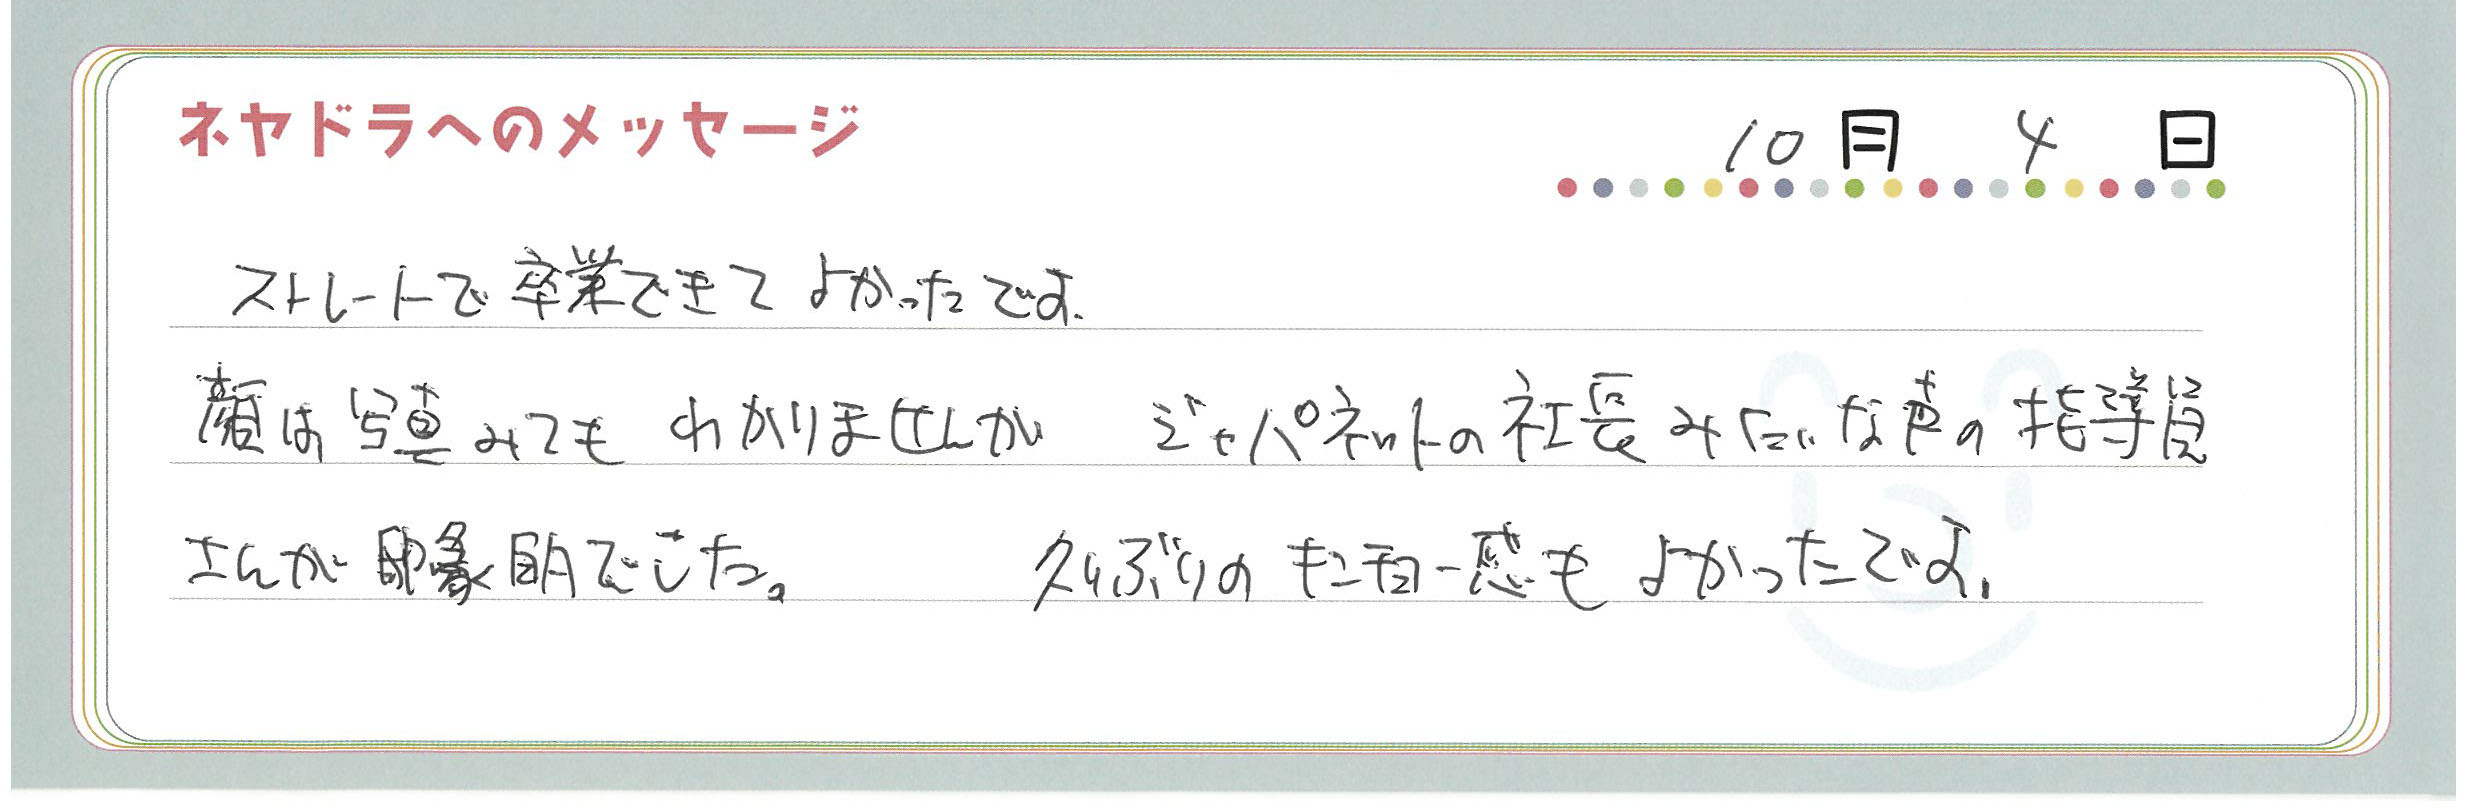 ネヤドラへのメッセージ
10月 4日
ストレートで卒業できてよかったです.
顔は写真みてもわかりませんが ジャパネットの社長みたいな声の指導員
さんが印象的でした。 久しぶりのキンチョー感もよかったです.